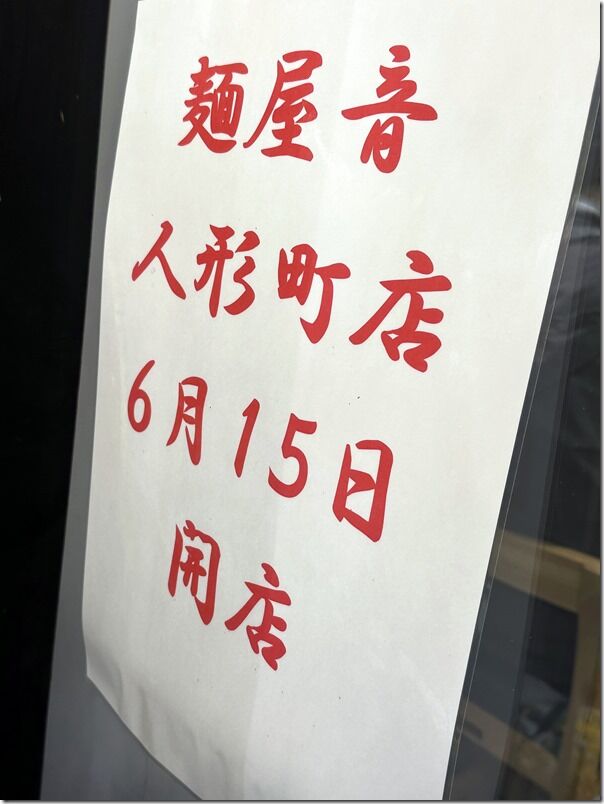 麺屋音
人形町店
6月15日
開店